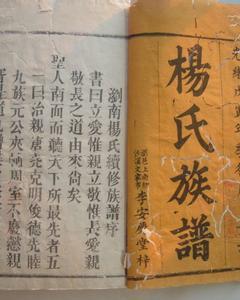 楊氏族譜
李安慶堂梓
瀏南楊氏續修族譜序
書曰立愛惟親立敬惟長愛親
敬長之道由來尚矣
聖人南面而聽天下所最先者五
一曰治親唐堯克明俊德先睦
九族元公夾輔周室不廢懿親